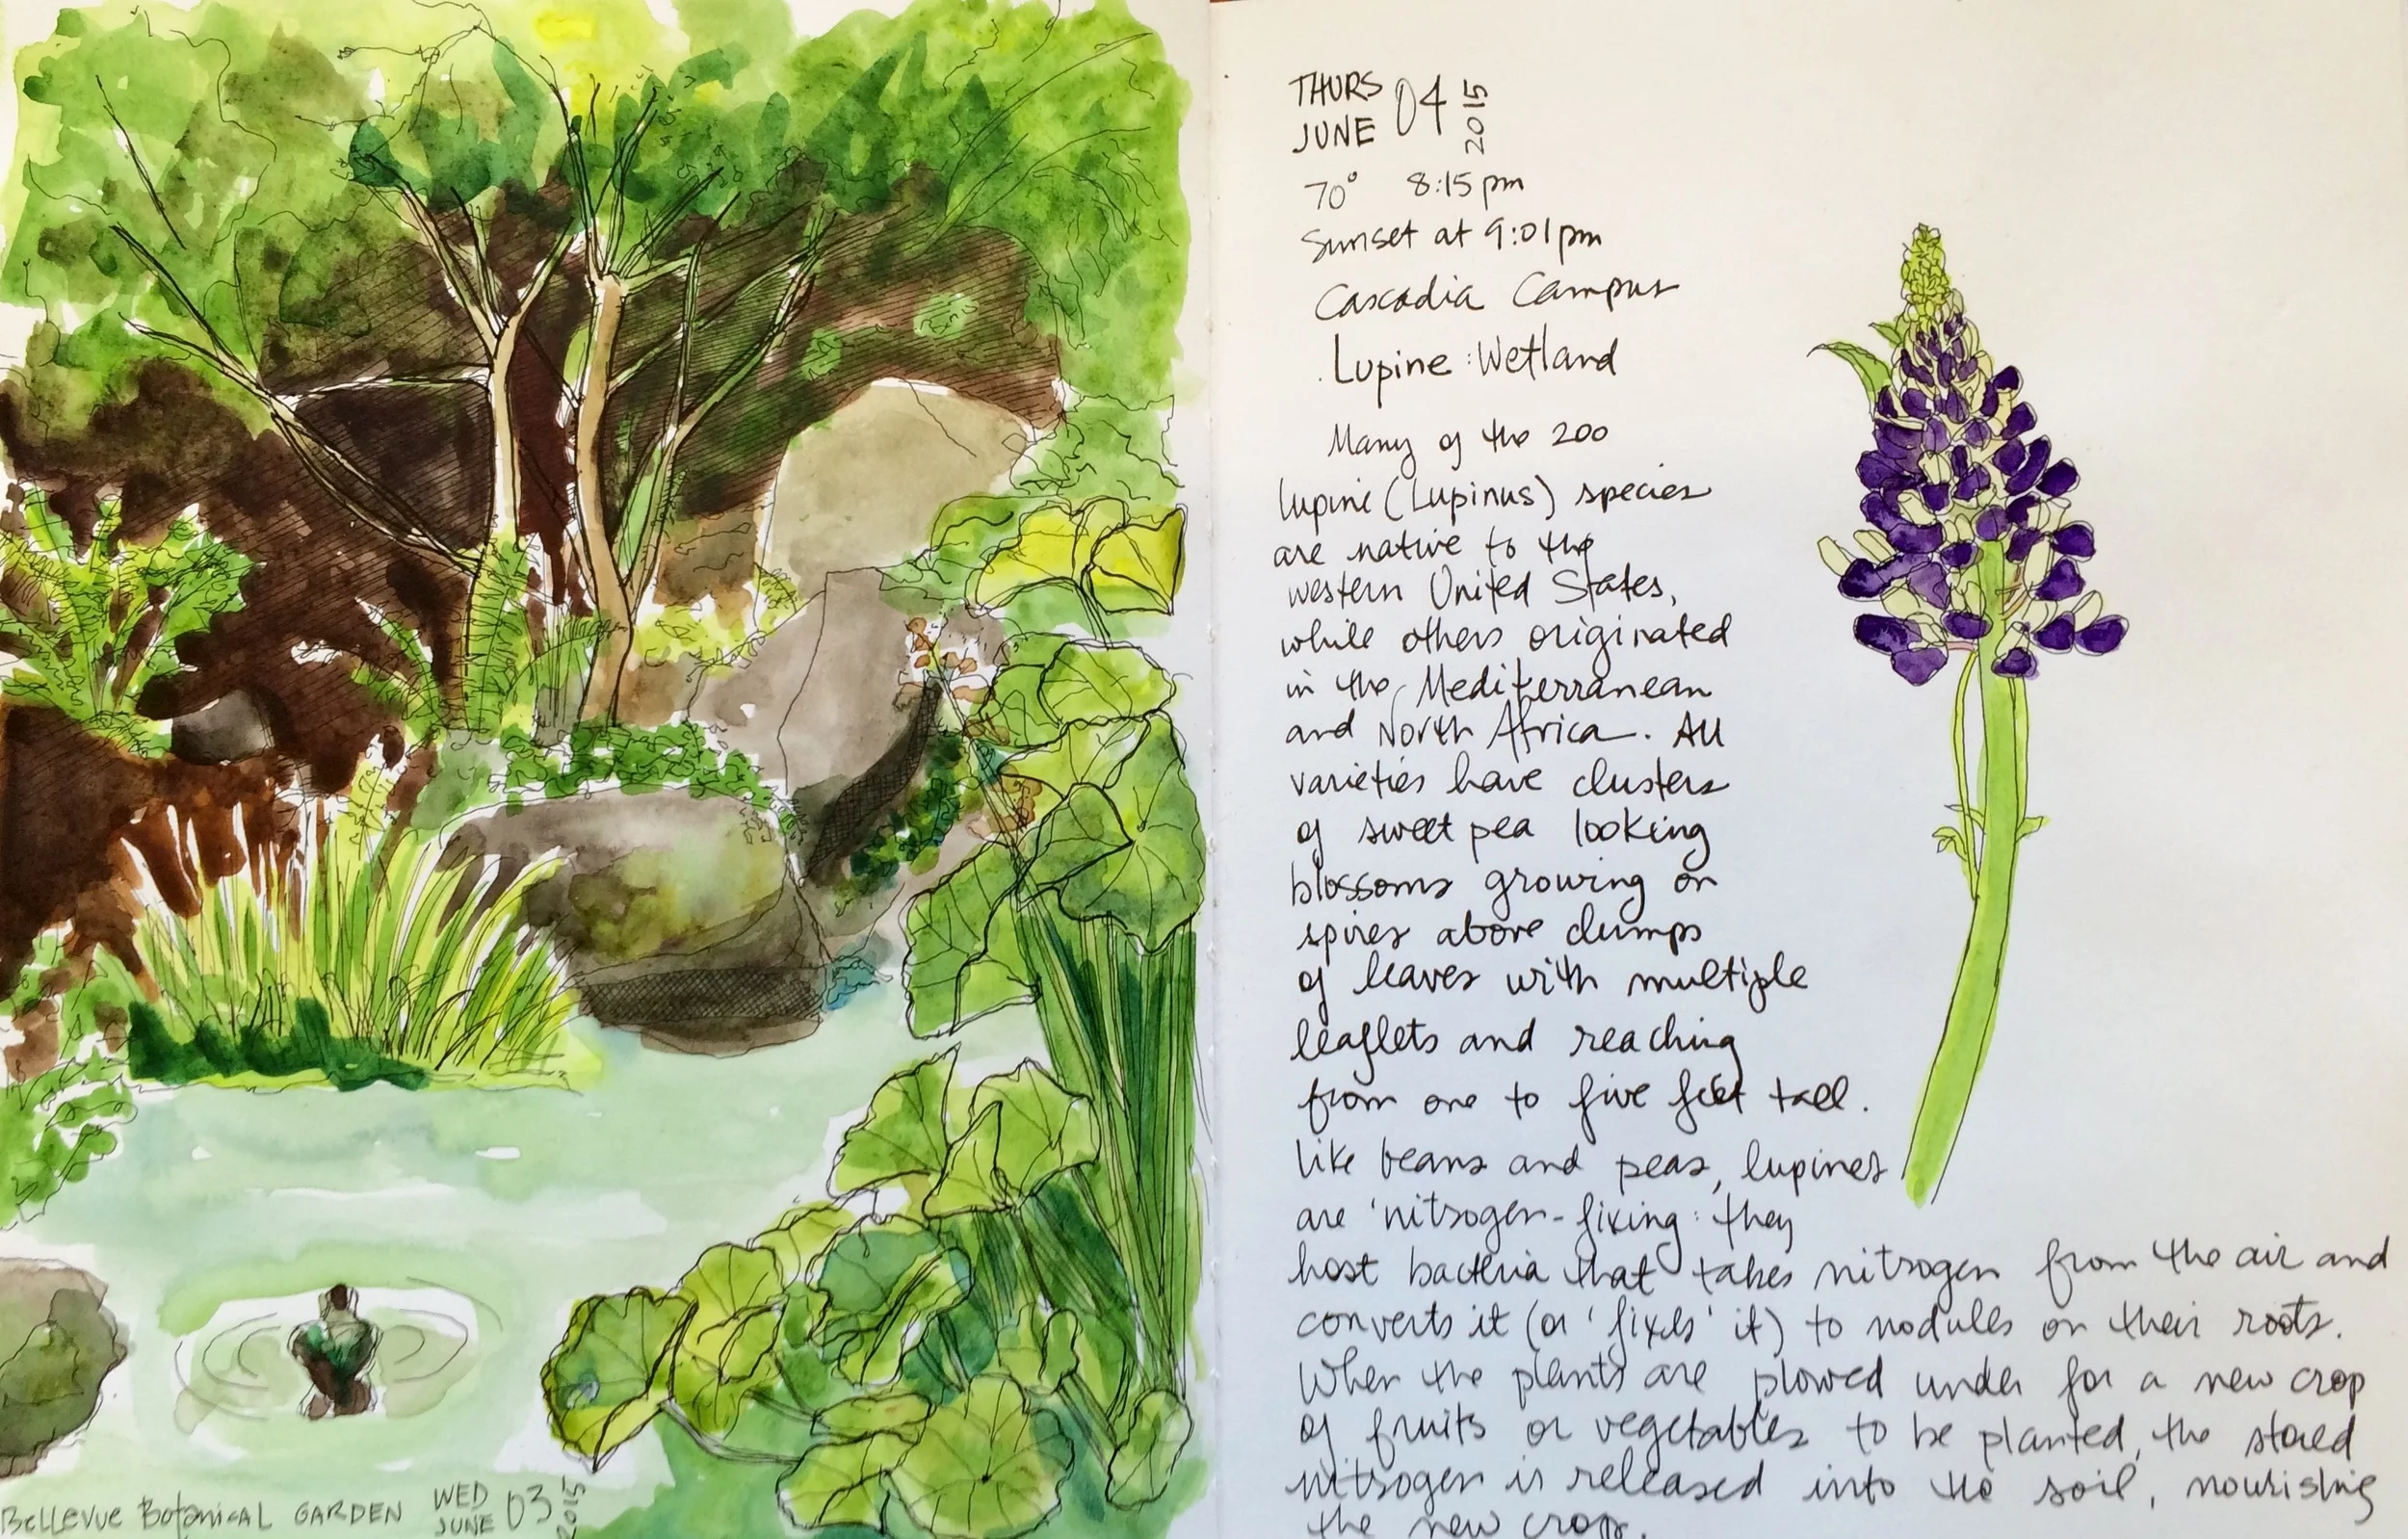 Bellevue Botanical GARDEN WED JUNE 03 2015
THURS JUNE 04 2015
70° 8:15 pm
Sunset at 9:01 pm
Cascadia Campus
Lupine : Wetland
Many of the 200
lupine (Lupinus) species
are native to the
western United States,
while others originated
in the Mediterranean
and North Africa. All
varieties have clusters
of sweet pea looking
blossoms growing on
spires above clumps
of leaves with multiple
leaflets and reaching
from one to five feet tall.
Like beans and peas, lupines
are 'nitrogen-fixing: they
host bacteria that takes nitrogen from the air and
converts it (or 'fixes' it) to nodules on their roots.
When the plants are plowed under for a new crop
of fruits or vegetables to be planted, the stored
nitrogen is released into the soil, nourishing
the new crop.